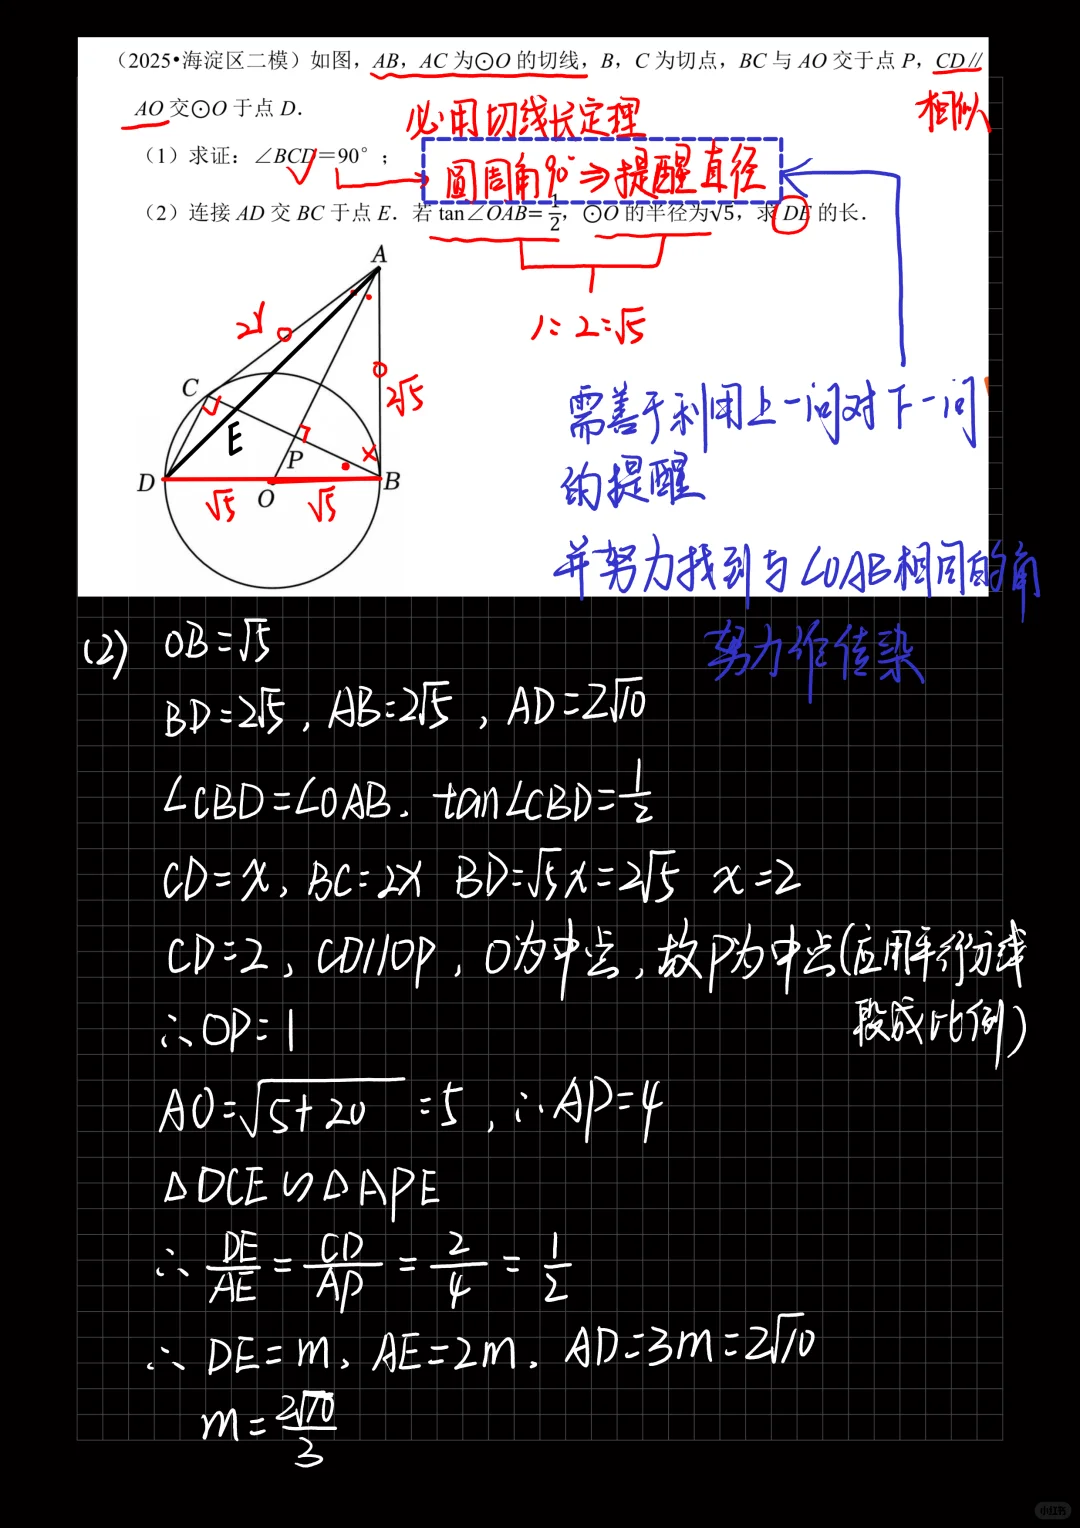 (2025•海淀区二模)如图，AB，AC 为⊙O 的切线，B，C 为切点，BC 与 AO 交于点 P，CD∥
AO 交⊙O 于点 D．
相似
必用切线长定理
(1)求证：∠BCD=90°；
圆周角90°⇒提醒直径
(2)连接 AD 交 BC 于点 E．若 tan∠OAB=1/2，⊙O 的半径为√5，求 DE 的长．
1:2:√5
A
2√5
C
E
P
x
D
O
B
√5
√5
需善于利用上一问对下一问
的提醒
并努力找到与∠OAB相同的角
努力作传染
(2) OB=√5
BD=2√5，AB=2√5，AD=2√10
∠CBD=∠OAB．tan∠CBD=1/2
CD=x，BC=2x BD=√5x=2√5 x=2
CD=2，CD//OP，O为中点，故P为中点(应用平行分线
段成比例)
∴OP=1
AO=√5+20=5，∴AP=4
△DCE∽△APE
∴DE/AE=CD/AP=2/4=1/2
∴DE=m，AE=2m，AD=3m=2√10
m=2√10/3
小红书